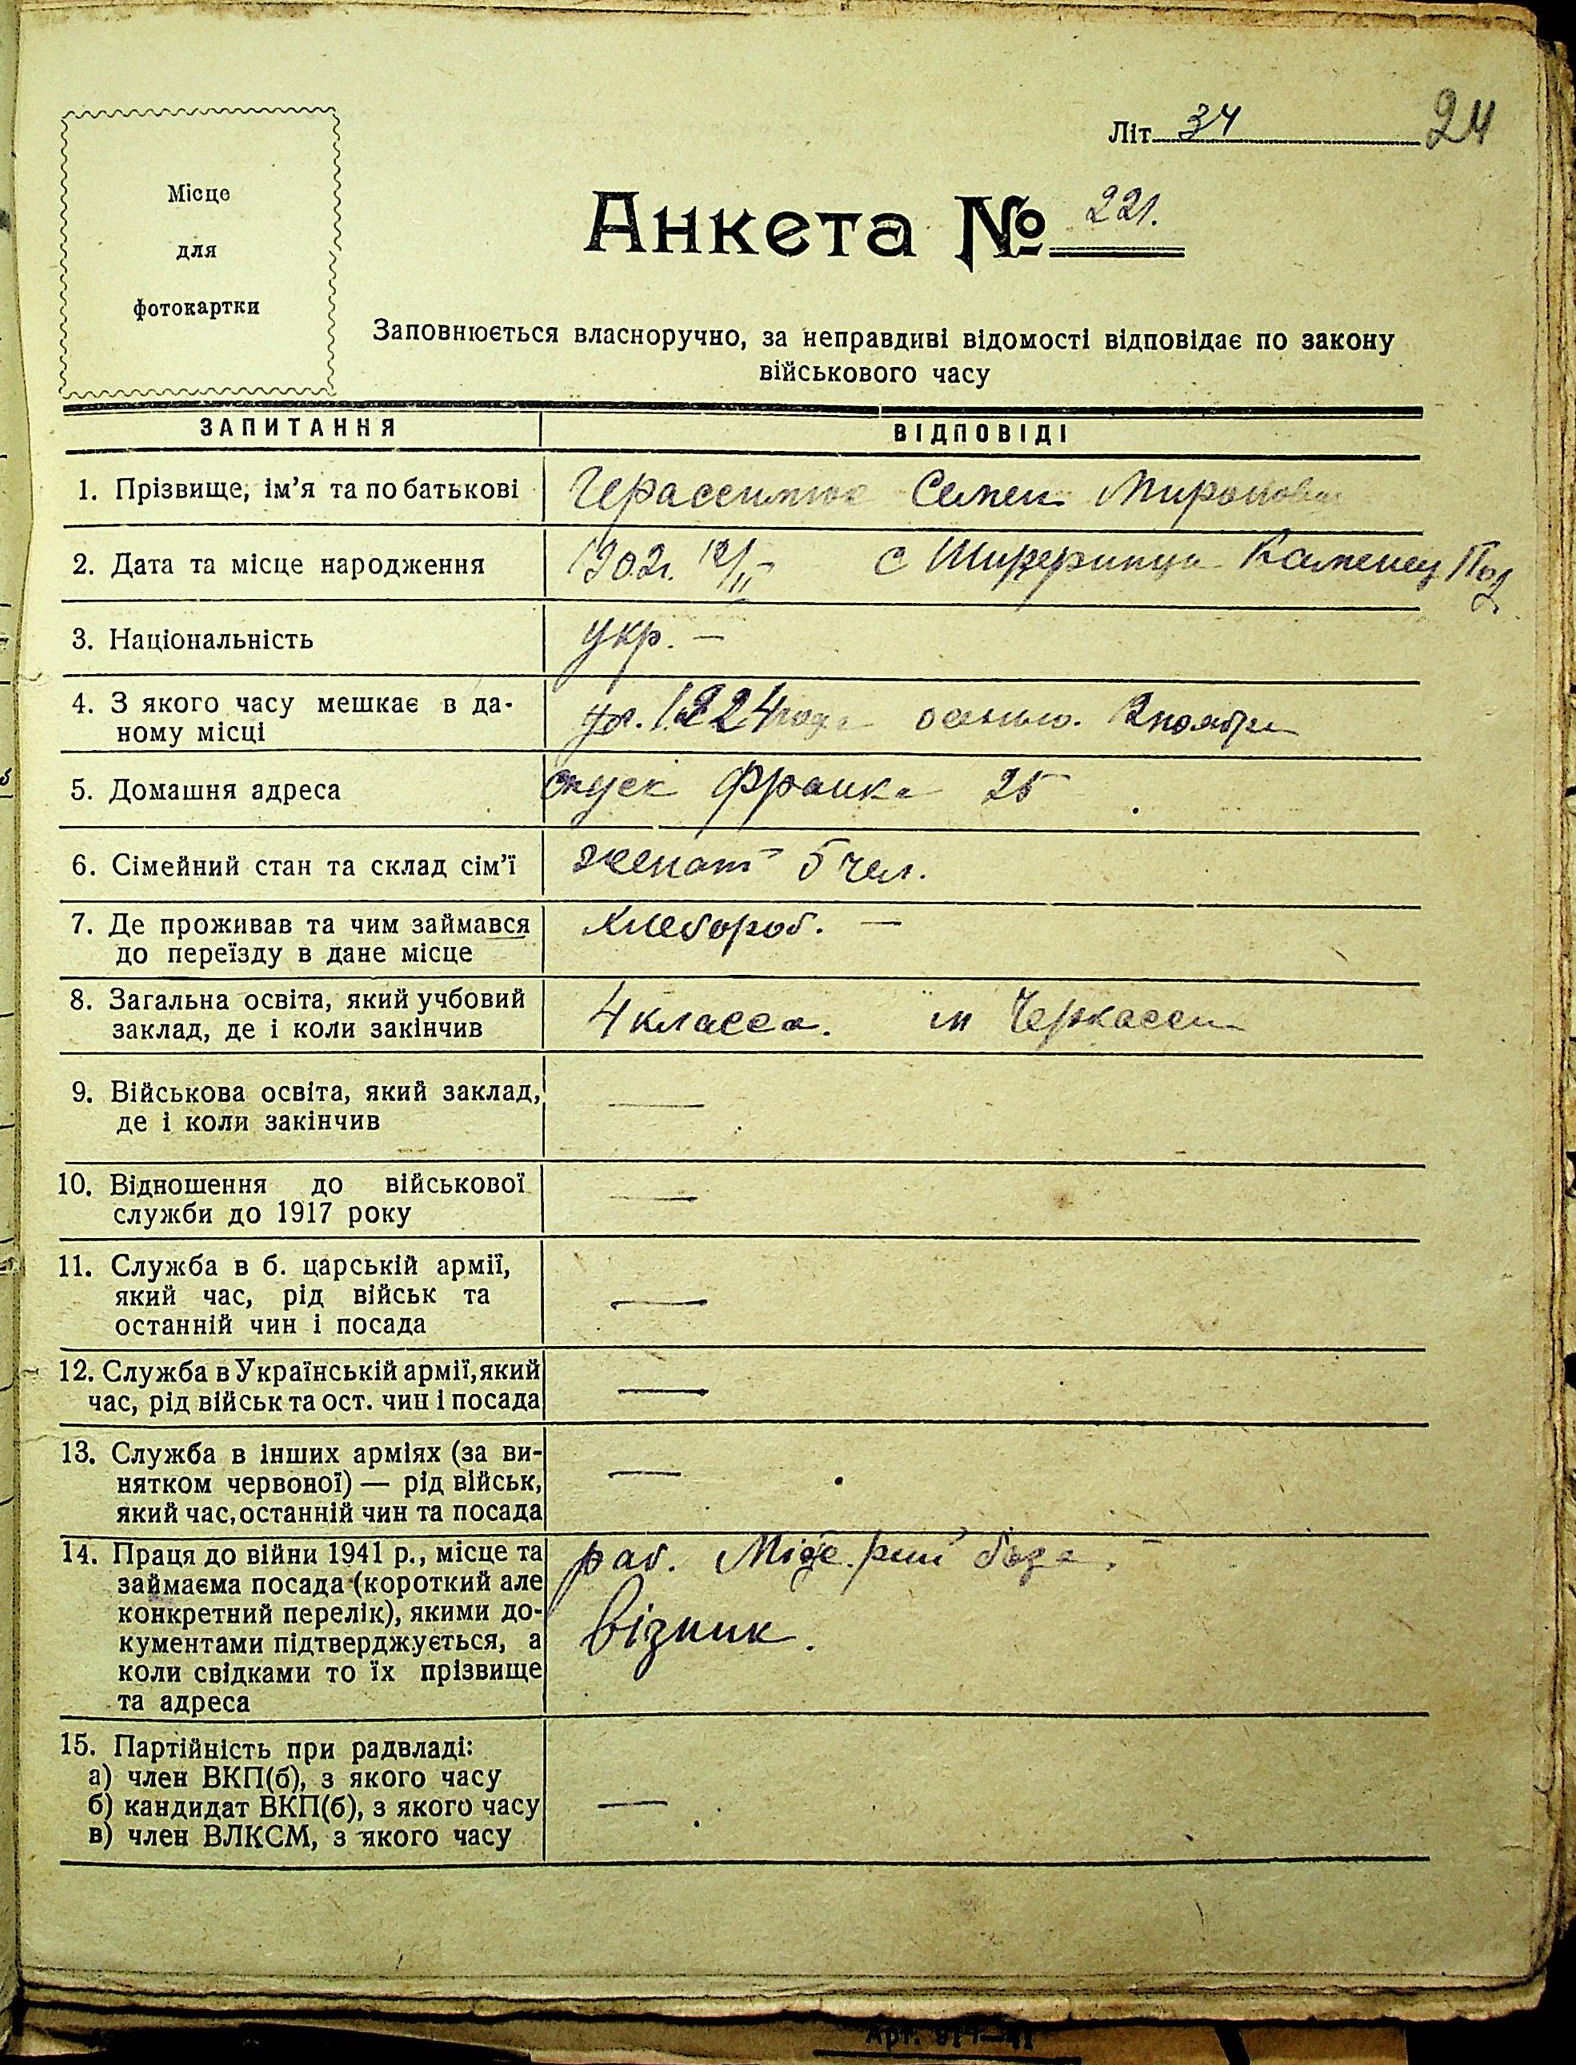 Літ. 34
24
Місце
для
фотокартки
Анкета № 221.
Заповнюється власноручно, за неправдиві відомості відповідає по закону
військового часу
ЗАПИТАННЯ
ВІДПОВІДІ
1. Прізвище, ім’я та по батькові
Герасимюк Семен Миронович
2. Дата та місце народження
1902г. 12/II с Каменец Под
3. Національність
укр. —
4. З якого часу мешкає в да-
ному місці
1924 года осенью. 2 ноября
5. Домашня адреса
спуск Франка 25
6. Сімейний стан та склад сім’ї
женат 5 чел.
7. Де проживав та чим займався
до переїзду в дане місце
хлебороб. —
8. Загальна освіта, який учбовий
заклад, де і коли закінчив
4 класса. Черкассы
9. Військова освіта, який заклад,
де і коли закінчив
—
10. Відношення до військової
служби до 1917 року
—
11. Служба в б. царській армії,
який час, рід військ та
останній чин і посада
—
12. Служба в Українській армії, який
час, рід військ та ост. чин і посада
—
13. Служба в інших арміях (за ви-
нятком червоної) — рід військ,
який час, останній чин та посада
—
14. Праця до війни 1941 р., місце та
займаєма посада (короткий але
конкретний перелік), якими до-
кументами підтверджується, а
коли свідками то їх прізвище
та адреса
раб. база. —
візник.
15. Партійність при радвладі:
а) член ВКП(б), з якого часу
б) кандидат ВКП(б), з якого часу
в) член ВЛКСМ, з якого часу
—